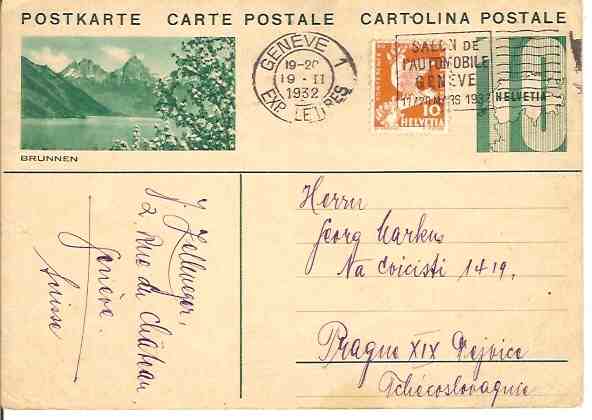 POSTKARTE CARTE POSTALE CARTOLINA POSTALE
BRUNNEN
GENÈVE 1
19-20
19-II
1932
EXP. LETTRES
10
HELVETIA
SALON DE
L'AUTOMOBILE
GENÈVE
MARS 1932
HELVETIA
10
J. Zellweger,
2, Rue du Château
Genève.
Suisse
Herrn
Georg Markus
Na Cvicisti 1419.
Prague XIX Dejvice
Tchécoslovaquie